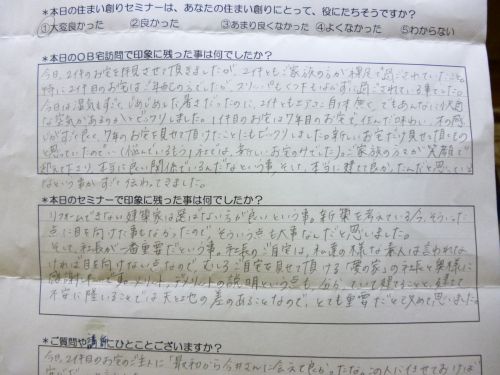 *本日の住まい創りセミナーは、あなたの住まい創りにとって、役にたちそうですか?
①大変良かった ②良かった ③あまり良くなかった ④よくなかった ⑤わからない
*本日のOB宅訪問で印象に残った事は何でしたか?
今日、2件のお宅を拝見させて頂きましたが、2件ともご家族の方が裸足で過ごされていたこと。
特に2件目のお宅は
今日は湿気もすごくじめじめした暑さだったのに、2件ともエアコン自体無く、でもあんなに快適な
空気があるのかとビックリしました。1件目のお宅は7年目のお宅で、住んだ味わい、木の感
じがすごく良く、7年のお宅を見せて頂けたことにもビックリしました。新しいお宅だけ見せて頂くもの
と思っていたので(悩んでいるもう1社では、新しいお宅のみでした)。ご家族の方々が笑顔で
本当に良い関係でいるんだなという事、そして、本当に建てて良かったんだと思ってい
るなという事がすごく伝わってきました。
*本日のセミナーで印象に残った事は何でしたか?
リフォームできない建築家は選ばない方が良いという事。新築を考えている今、そういった
点に目を向けた事もなかったので、そういう点も大事なんだと思いました。
そして、社長が一番重要だという事。社長のご自宅は、私達の様な素人は言われな
ければ目を向けない点なので、むしろご自宅を見せて頂ける「愛の家」の社長と奥様に
感謝
不安に陥いることでは天と地の差のあることなので、とても重要だと改めて思いました。
*ご質問や講師にひとことございますか?
今日、2件目のお宅のご主人に「最初から今井さんに会えて良かったな。この人に任せておけば